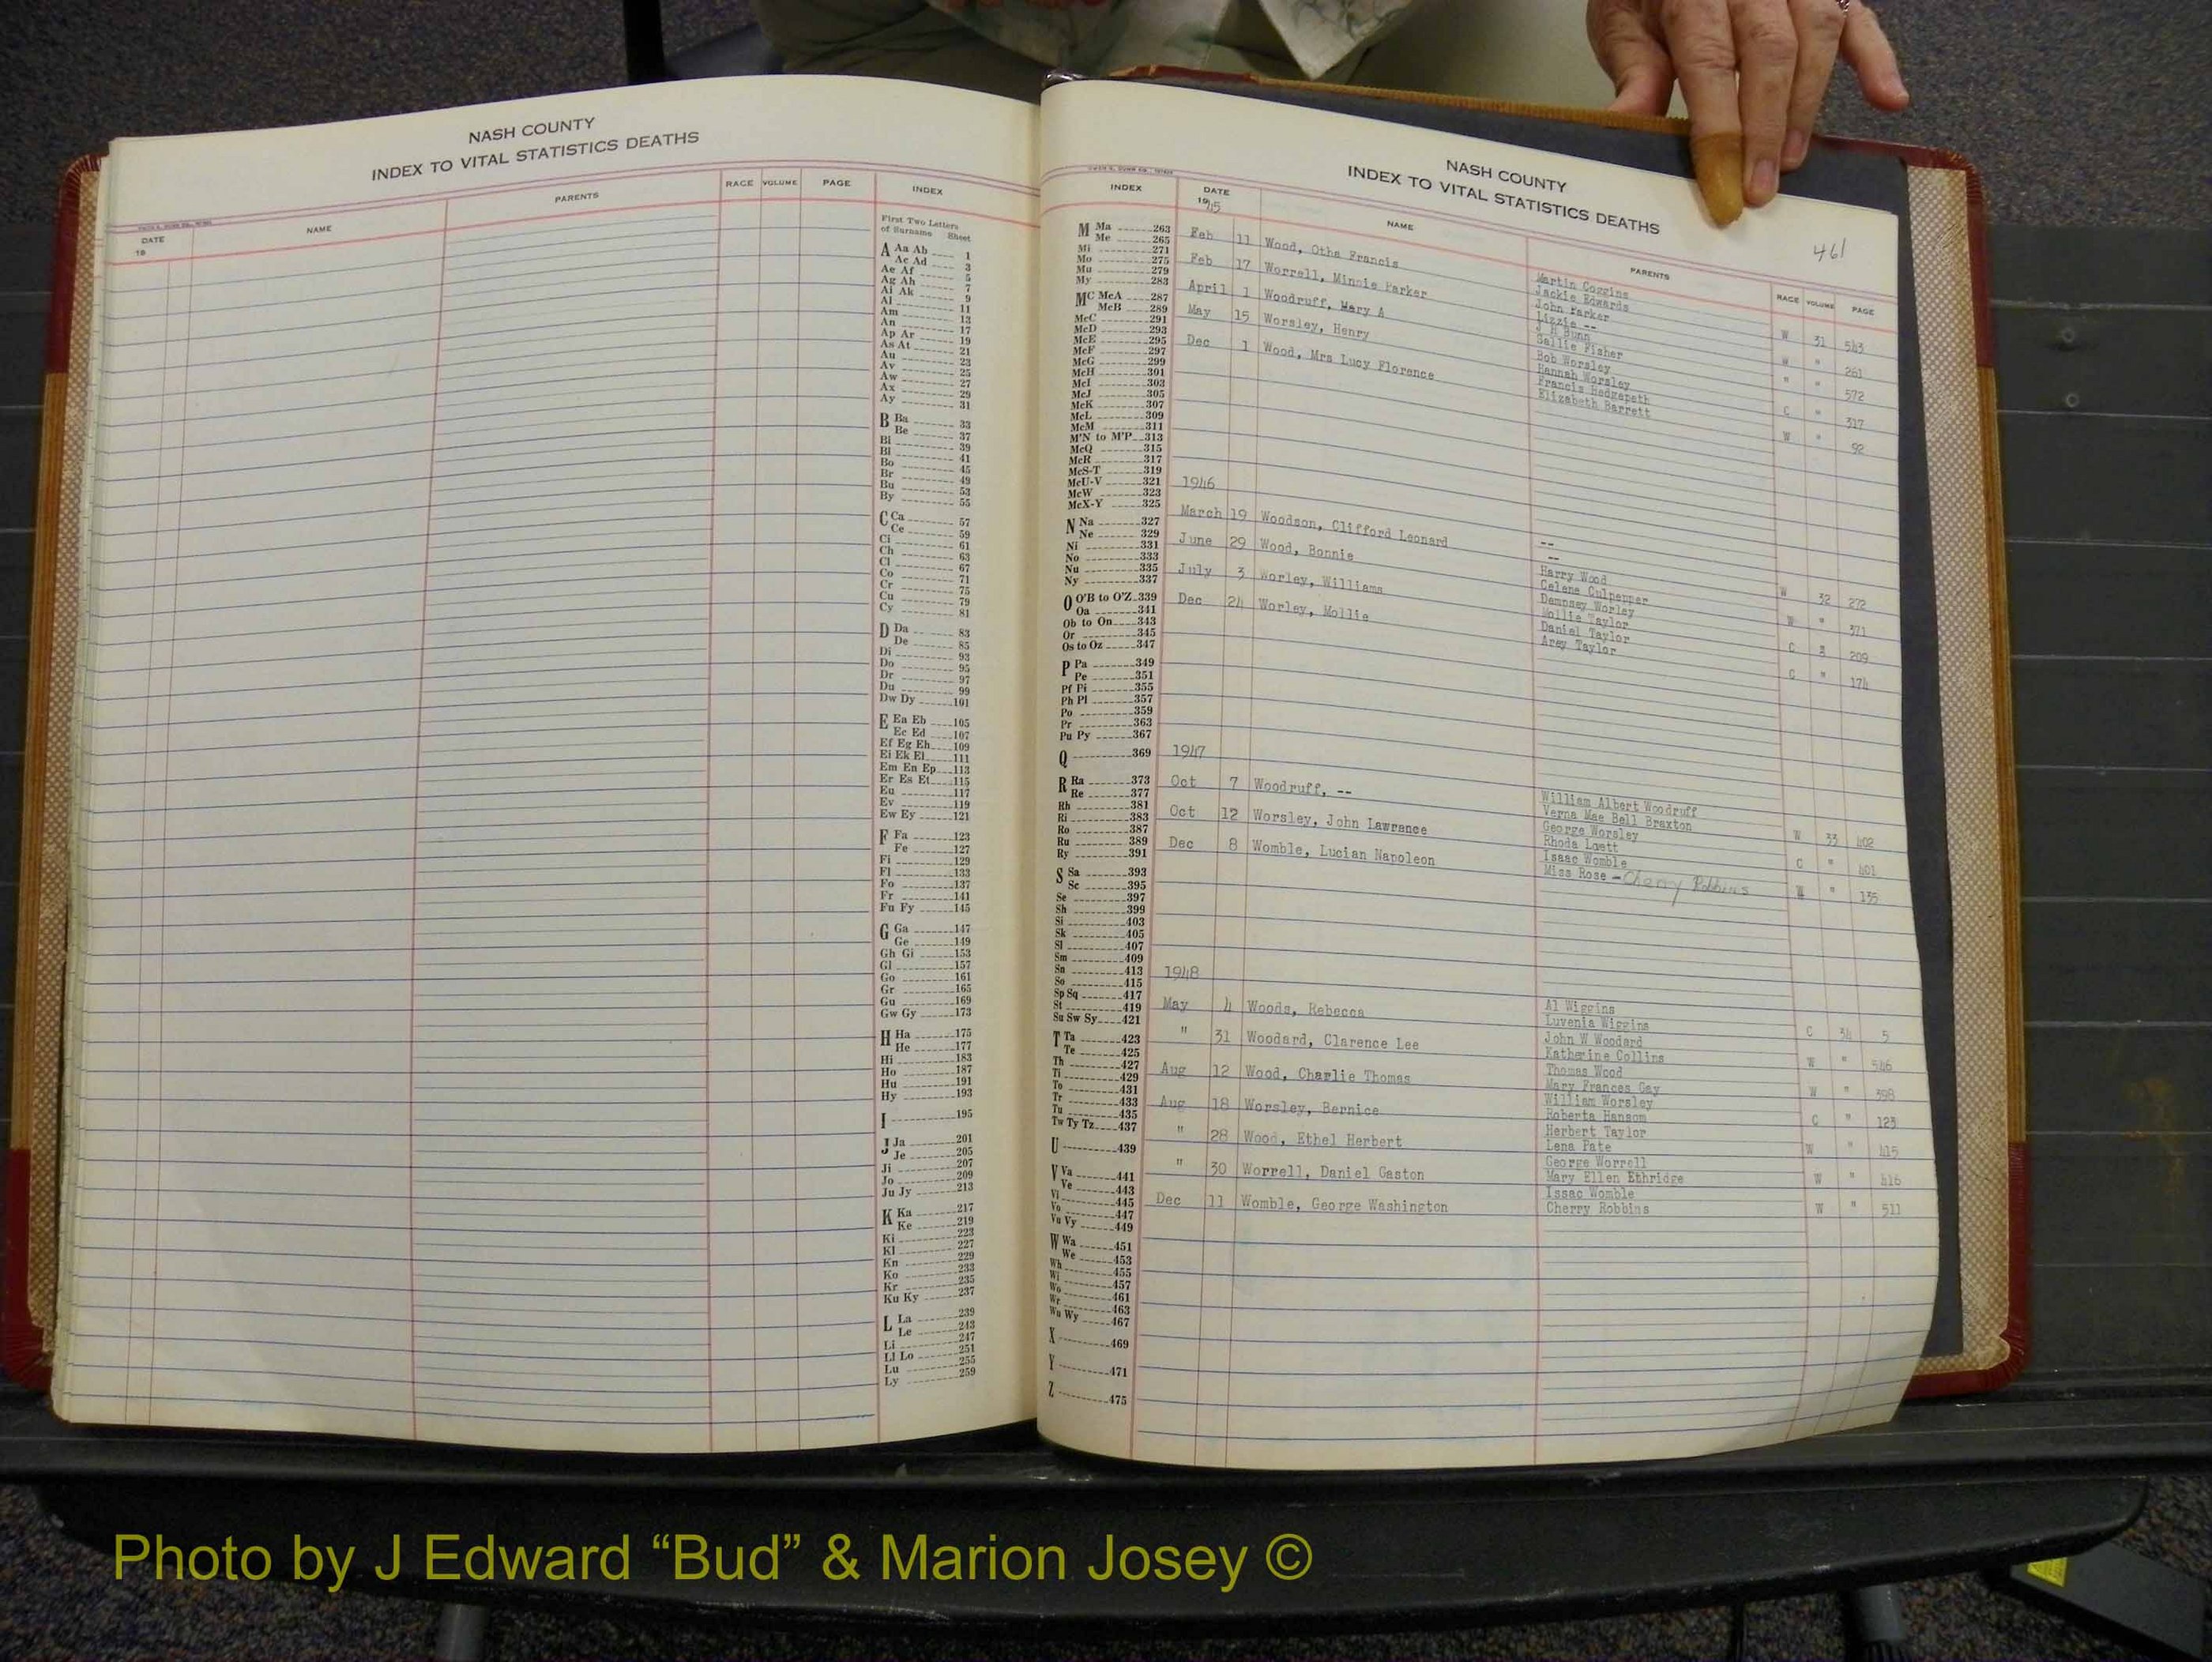 NASH COUNTY
INDEX TO VITAL STATISTICS DEATHS
DATE
19
NAME
PARENTS
RACE
VOLUME
PAGE
INDEX
First Two Letters
of Surname Sheet
A Aa Ab 1
Ac Ad 3
Ae Af 5
Ag Ah 7
Ai Ak 9
Al 11
Am 13
An 17
Ap Ar 19
As At 21
Au 23
Av 25
Aw 27
Ax 29
Ay 31
B Ba 33
Be 37
Bi 39
Bl 41
Bo 45
Br 49
Bu 53
By 55
C Ca 57
Ce 59
Ci 61
Ch 63
Cl 67
Co 71
Cr 75
Cu 79
Cy 81
D Da 83
De 85
Di 93
Do 95
Dr 97
Du 99
Dw Dy 101
E Ea Eb 105
Ec Ed 107
Ef Eg Eh 109
Ei Ek El 111
Em En Ep 113
Er Es Et 115
Eu 117
Ev 119
Ew Ey 121
F Fa 123
Fe 127
Fi 129
Fl 133
Fo 137
Fr 141
Fu Fy 145
G Ga 147
Ge 149
Gh Gi 153
Gl 157
Go 161
Gr 165
Gu 169
Gw Gy 173
H Ha 175
He 177
Hi 183
Ho 187
Hu 191
Hy 193
I 195
J Ja 201
Je 205
Ji 207
Jo 209
Ju Jy 213
K Ka 217
Ke 219
Ki 223
Kl 227
Kn 229
Ko 233
Kr 235
Ku Ky 237
L La 239
Le 243
Li 247
Ll Lo 251
Lu 255
Ly 259
NASH COUNTY
INDEX TO VITAL STATISTICS DEATHS
461
INDEX
DATE
1945
NAME
PARENTS
RACE
VOLUME
PAGE
M Ma 263
Me 265
Mi 271
Mo 275
Mu 279
My 283
MC McA 287
McB 289
McC 291
McD 293
McE 295
McF 297
McG 299
McH 301
McI 303
McJ 305
McK 307
McL 309
McM 311
M'N to M'P 313
McQ 315
McR 317
McS-T 319
McU-V 321
McW 323
McX-Y 325
N Na 327
Ne 329
Ni 331
No 333
Nu 335
Ny 337
O O'B to O'Z 339
Oa 341
Ob to On 343
Or 345
Os to Oz 347
P Pa 349
Pe 351
Pf Pi 355
Ph Pl 357
Po 359
Pr 363
Pu Py 367
Q 369
R Ra 373
Re 377
Rh 381
Ri 383
Ro 387
Ru 389
Ry 391
S Sa 393
Sc 395
Se 397
Sh 399
Si 403
Sk 405
Sl 407
Sm 409
Sn 413
So 415
Sp Sq 417
St 419
Su Sw Sy 421
T Ta 423
Te 425
Th 427
Ti 429
To 431
Tr 433
Tu 435
Tw Ty Tz 437
U 439
V Va 441
Ve 443
Vi 445
Vo 447
Vu Vy 449
W Wa 451
We 453
Wh 455
Wi 457
Wo 461
Wr 463
Wu Wy 467
X 469
Y 471
Z 475
Feb 11 Wood, Otha Francis Martin Coggins
Jackie Edwards W 31 543
Feb 17 Worrell, Minnie Parker John Parker
Lizzie -- W " 261
April 1 Woodruff, Mary A J H Bunn
Sallie Fisher " " 572
May 15 Worsley, Henry Bob Worsley
Hannah Worsley C " 317
Dec 1 Wood, Mrs Lucy Florence Francis Hedgepeth
Elizabeth Barrett W " 92
1946
March 19 Woodson, Clifford Leonard --
-- W 32 272
June 29 Wood, Bonnie Harry Wood
Celene Culpepper W " 371
July 3 Worley, Williams Dempsey Worley
Mollie Taylor C 3 209
Dec 24 Worley, Mollie Daniel Taylor
Arey Taylor C " 174
1947
Oct 7 Woodruff, -- William Albert Woodruff
Verna Mae Bell Braxton W 33 402
Oct 12 Worsley, John Lawrance George Worsley
Rhoda C " 401
Dec 8 Womble, Lucian Napoleon Isaac Womble
Miss Rose - Cherry Robbins W " 135
1948
May 4 Woods, Rebecca Al Wiggins
Luvenia Wiggins C 34 5
" 31 Woodard, Clarence Lee John W Woodard
Katherine Collins W " 546
Aug 12 Wood, Charlie Thomas Thomas Wood
Mary Frances Gay W " 398
Aug 18 Worsley, Bernice William Worsley
Roberta Hansom C " 123
" 28 Wood, Ethel Herbert Herbert Taylor
Lena Pate W " 415
" 30 Worrell, Daniel Gaston George Worrell
Mary Ellen Ethridge W " 416
Dec 11 Womble, George Washington Issac Womble
Cherry Robbins W " 511
Photo by J Edward “Bud” & Marion Josey ©